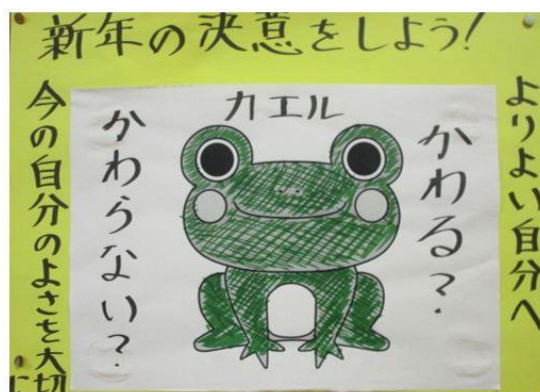 新年の決意をしよう!
よりよい自分へ
カエル
かわる?
かわらない?
今の自分のよさを大切に